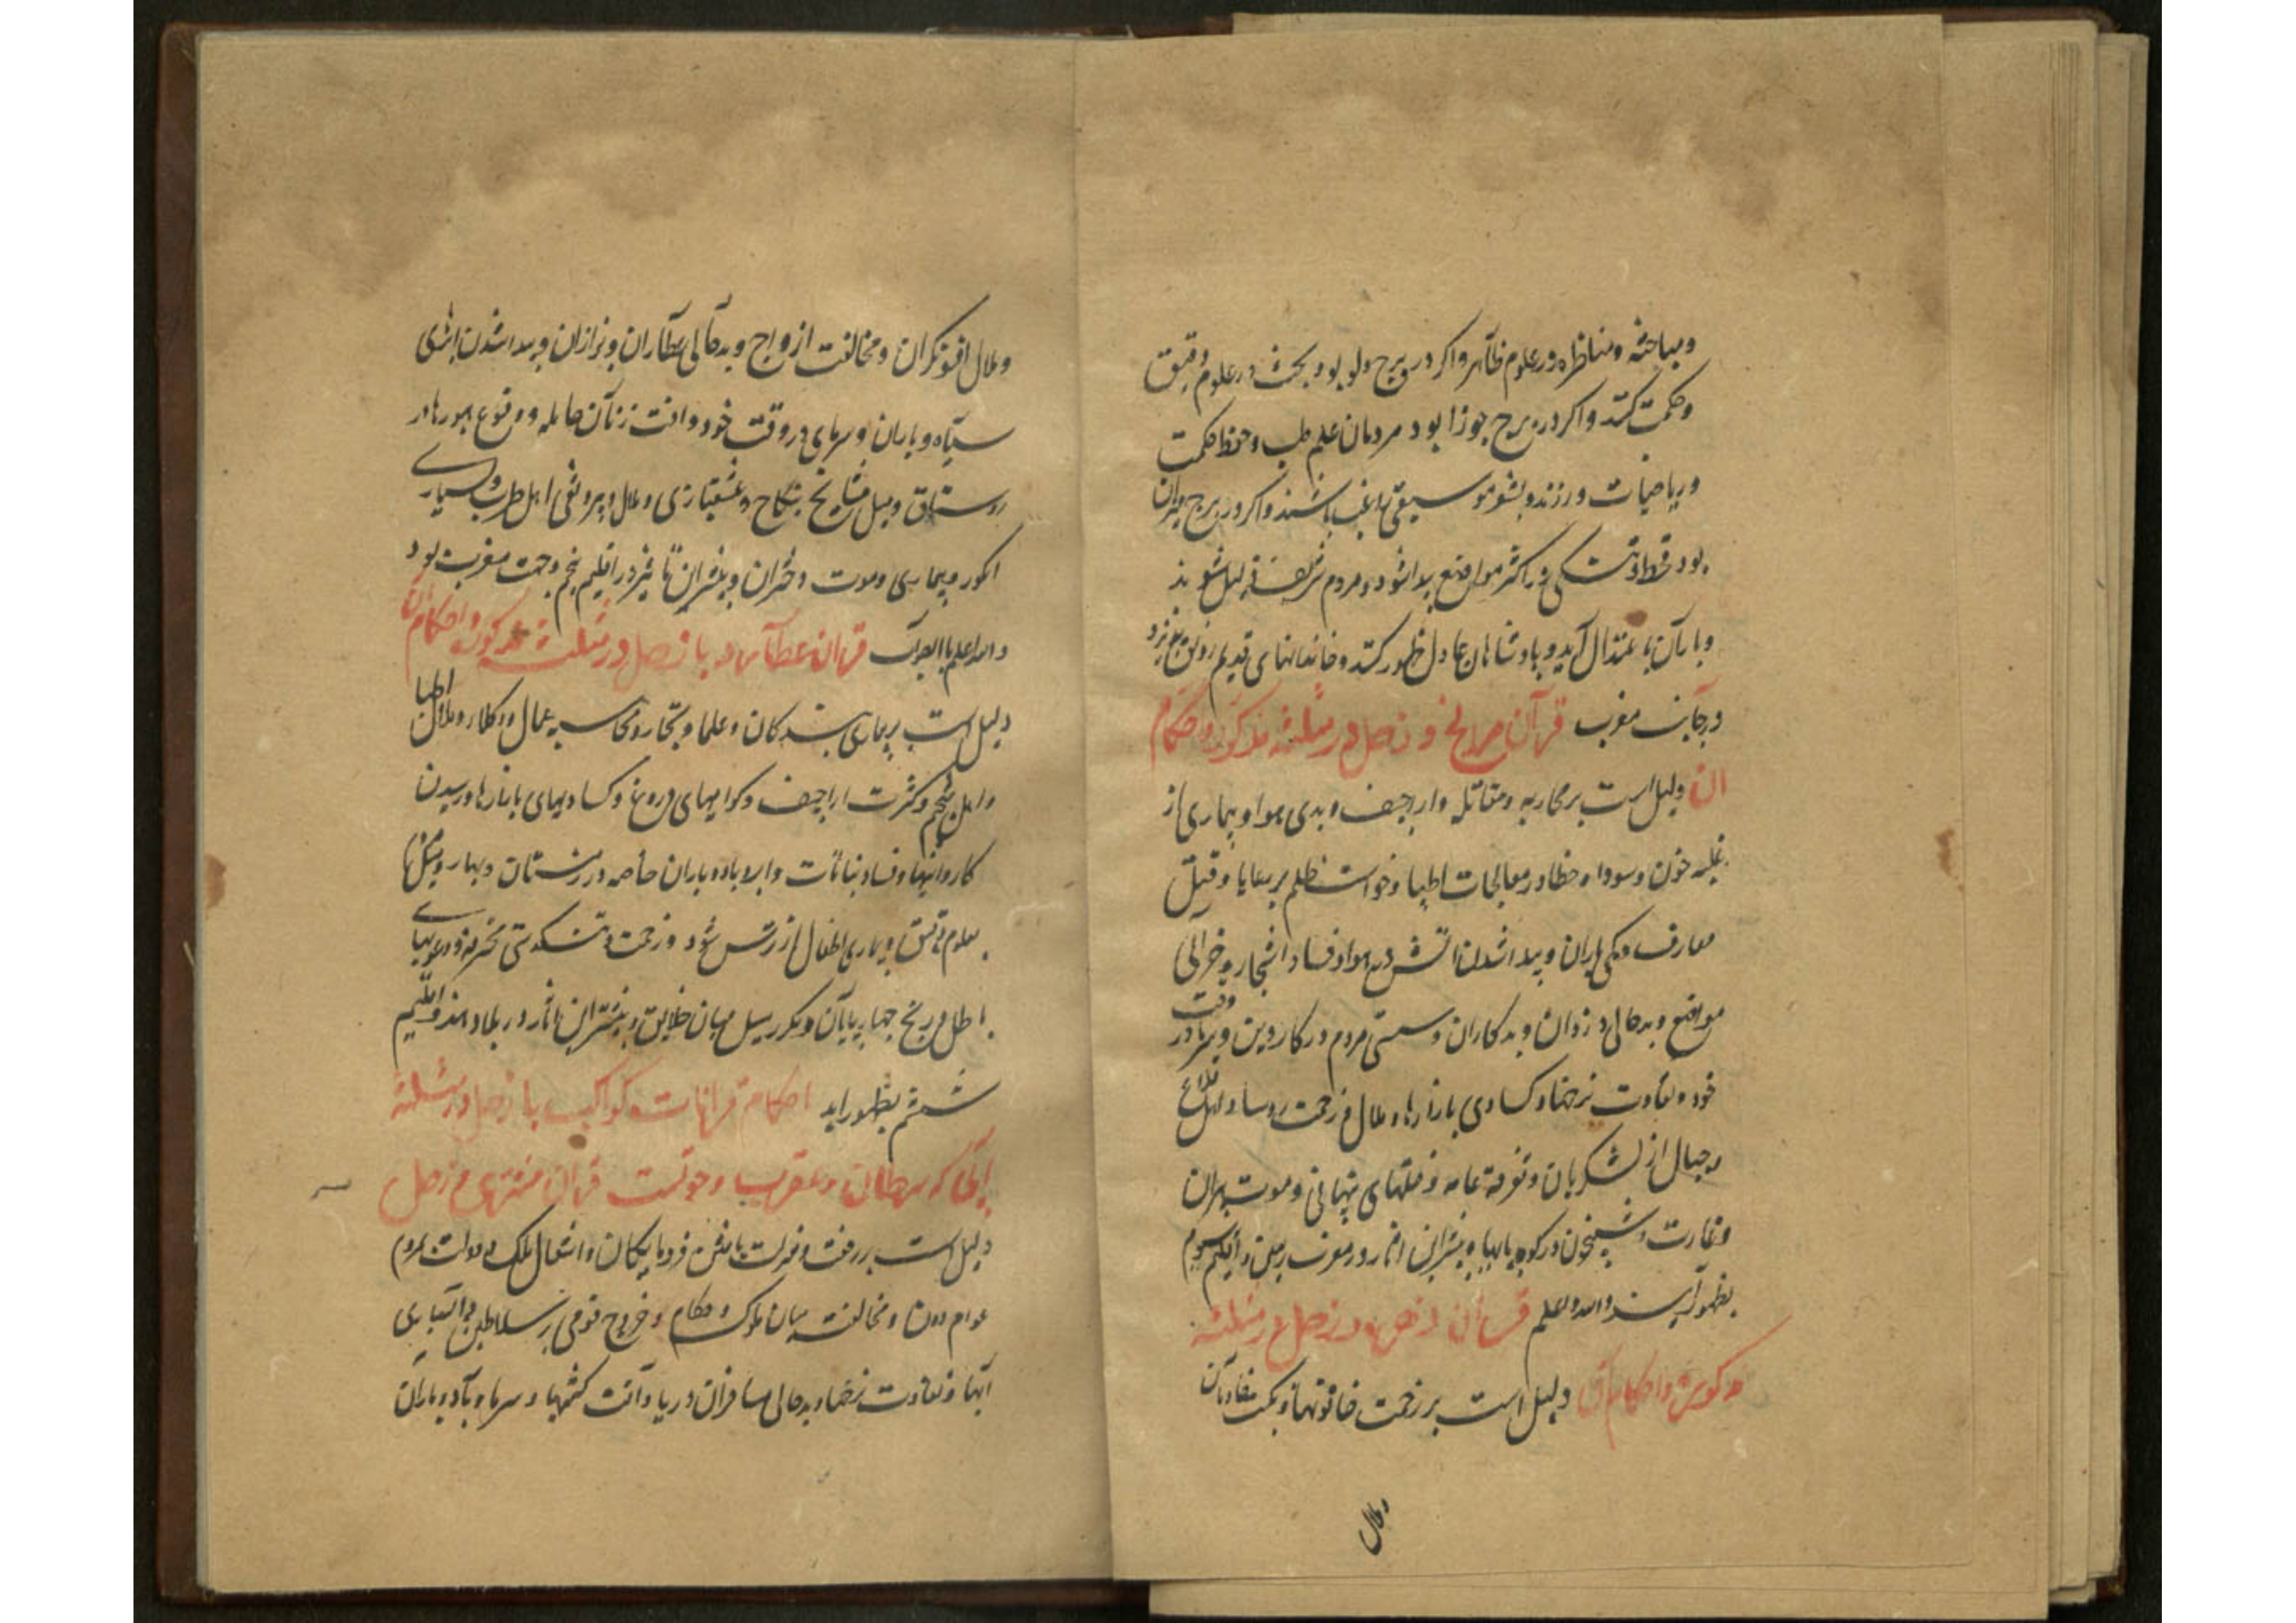 ومباحثه ومناظره در علوم ظاهر واکر در برج دلو بود بحث در علوم دقیق
وحکمت کنند واکر در برج جوزا بود مردمان علم طب وحفظ حکمت
وریاضیات ورزند وبشعر وموسیقی راغب باشند واکر در برج میزان
بود قحط وتنکی در اکثر مواضع پیدا شود ومردم شریف ذلیل شوند
وباران باعتدال آید وپادشاهان عادل ظهور کنند وخاندانهای قدیم رونق پذیرد
در جانب مغرب قرآن مریخ وزحل در مثلثه مذکوره واحکام
ان دلیل است بر محاربه ومقاتله واراجیف وبدی هوا وبیماری از
غلبه خون وسودا وخطا در معالجات اطبا وخواست ظلم بر رعایا وقتل
معارف وکمی باران وپیدا شدن آتش در هوا وفساد اشجار وخرابی
مواضع وبدحالی دزدان وبدکاران وسستی مردم در کار دین وسرما در وقت
خود وتفاوت نرخها وکسادی بازارها وملال وزحمت روسا واهل قلاع
وجبال از لشکریان وتفرقه عامه وفتنهای پنهانی وموت پیران
وغارت وشبیخون در کوه پایها وبیشتر این اثار در مغرب زمین واقلیم سوم
بظهور آیند والله اعلم قرآن زهره وزحل در مثلثه
مذکوره واحکام آن دلیل است بر زحمت خاتونها
وملال
وملال افسونکران ومخالفت ازواج وبدحالی عطاران وبزازان وپیدا شدن ابرهای
سیاه وباران وسرمای در وقت خود وافت زنان حامله ووقوع
روستاق ومیل مشایخ بنکاح وعشقبازی وملال وبیرونقی اهل طرب وبسیاری
انکور وبیماری وموت دختران وبیشتر این تاثیر در اقلیم پنجم وجهت مغرب بود
والله اعلم بالصواب قران عطارد با زحل در مثلثه مذکوره واحکام آن
دلیل است بر بیماری بندکان وعلما وتجار ومحاسبه عمال ووکلا وملال اطبا
واهل تنجیم وکثرت اراجیف وکواهیهای دروغ وکسادیهای بازارها ورسیدن
کاروانها وفساد نباتات وابر وباد وباران خاصه در زمستان وبهار
بعلوم دقیق وبیماری اطفال از ترس شود وزحمت وتنکدستی محترفه ودعویهای
باطل ورنج چهارپایان ومکر وحیل میان خلایق وبیشتر این اثار در بلاد هند واقلیم
ششم بظهور اید احکام قرانات کواکب با زحل در مثلثه
آبی که سرطان وعقرب وحوتست قران مشتری وزحل
دلیل است بر رفعت وفرومایکان وانتقال ملک ودولت بمردم
عوام دون ومخالفت میان ملوک وحکام وخروج قومی بر سلاطین وبسیاری
آبها وتفاوت نرخها وبدحالی مسافران دریا وآفت کشتیها وسرما وباد وباران